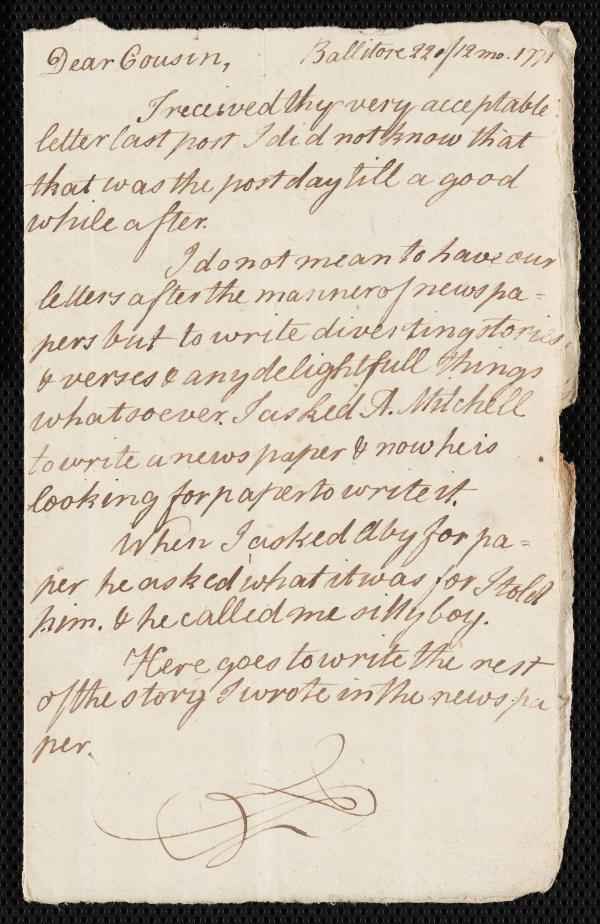 Dear Cousin, Ballitore 22 of 12 mo. 1771
I received thy very acceptable
letter last post I did not know that
that was the post day till a good
while after.
I do not mean to have our
letters after the manner of news pa=
pers but to write diverting stories
& verses & any delightfull things
whatsoever. I asked A. Mitchell
to write a news paper & now he is
looking for paper to write it.
When I asked Aby for pa=
per he asked what it was for I told
him. & he called me silly boy.
Here goes to write the rest
of the story I wrote in the news pa
per.